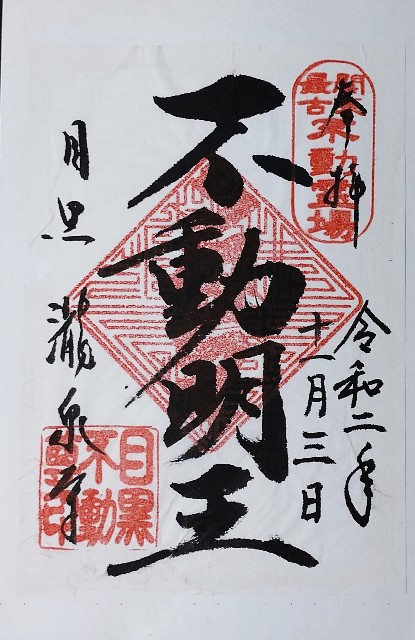 奉拝
関東
最古
不動霊場
令和二年
十一月三日
不動明王
目黒
瀧泉寺
目黒
不動
印